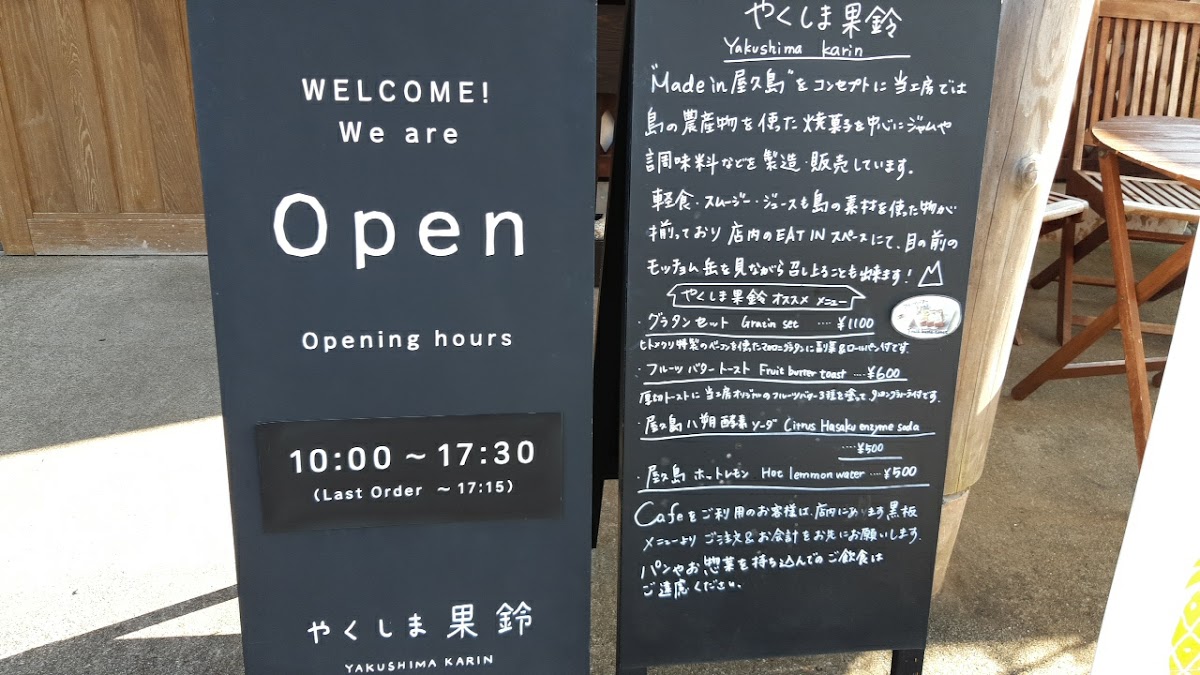 WELCOME!
We are
Open
Opening hours
10:00 ~ 17:30
(Last Order ~ 17:15)
やくしま果鈴
YAKUSHIMA KARIN
やくしま果鈴
Yakushima karin
"Made in 屋久島"をコンセプトに当工房では
島の農産物を使った焼菓子を中心にジャムや
調味料などを製造・販売しています。
軽食・スムージー・ジュースも島の素材を使った物が
揃っており店内のEAT INスペースにて、目の前の
モッチョム岳を見ながら召し上ることも出来ます!
やくしま果鈴 オススメ メニュー
・グラタンセット Gratin set ････ ¥1100
特製のベーコンを使ったマカロニグラタンに副菜&ロールパン付です。
・フルーツバタートースト Fruit butter toast ････ ¥600
厚切トーストに当工房オリジナルのフルーツバター3種を塗って、
・屋久島八朔酵素ソーダ Citrus Hasaku enzyme soda
････ ¥500
・屋久島ホットレモン Hot lemmon water ････ ¥500
Cafeをご利用のお客様は、店内にあります黒板
メニューよりご注文&お会計をお先にお願いします。
パンやお惣菜を持ち込んでのご飲食は
ご遠慮ください。